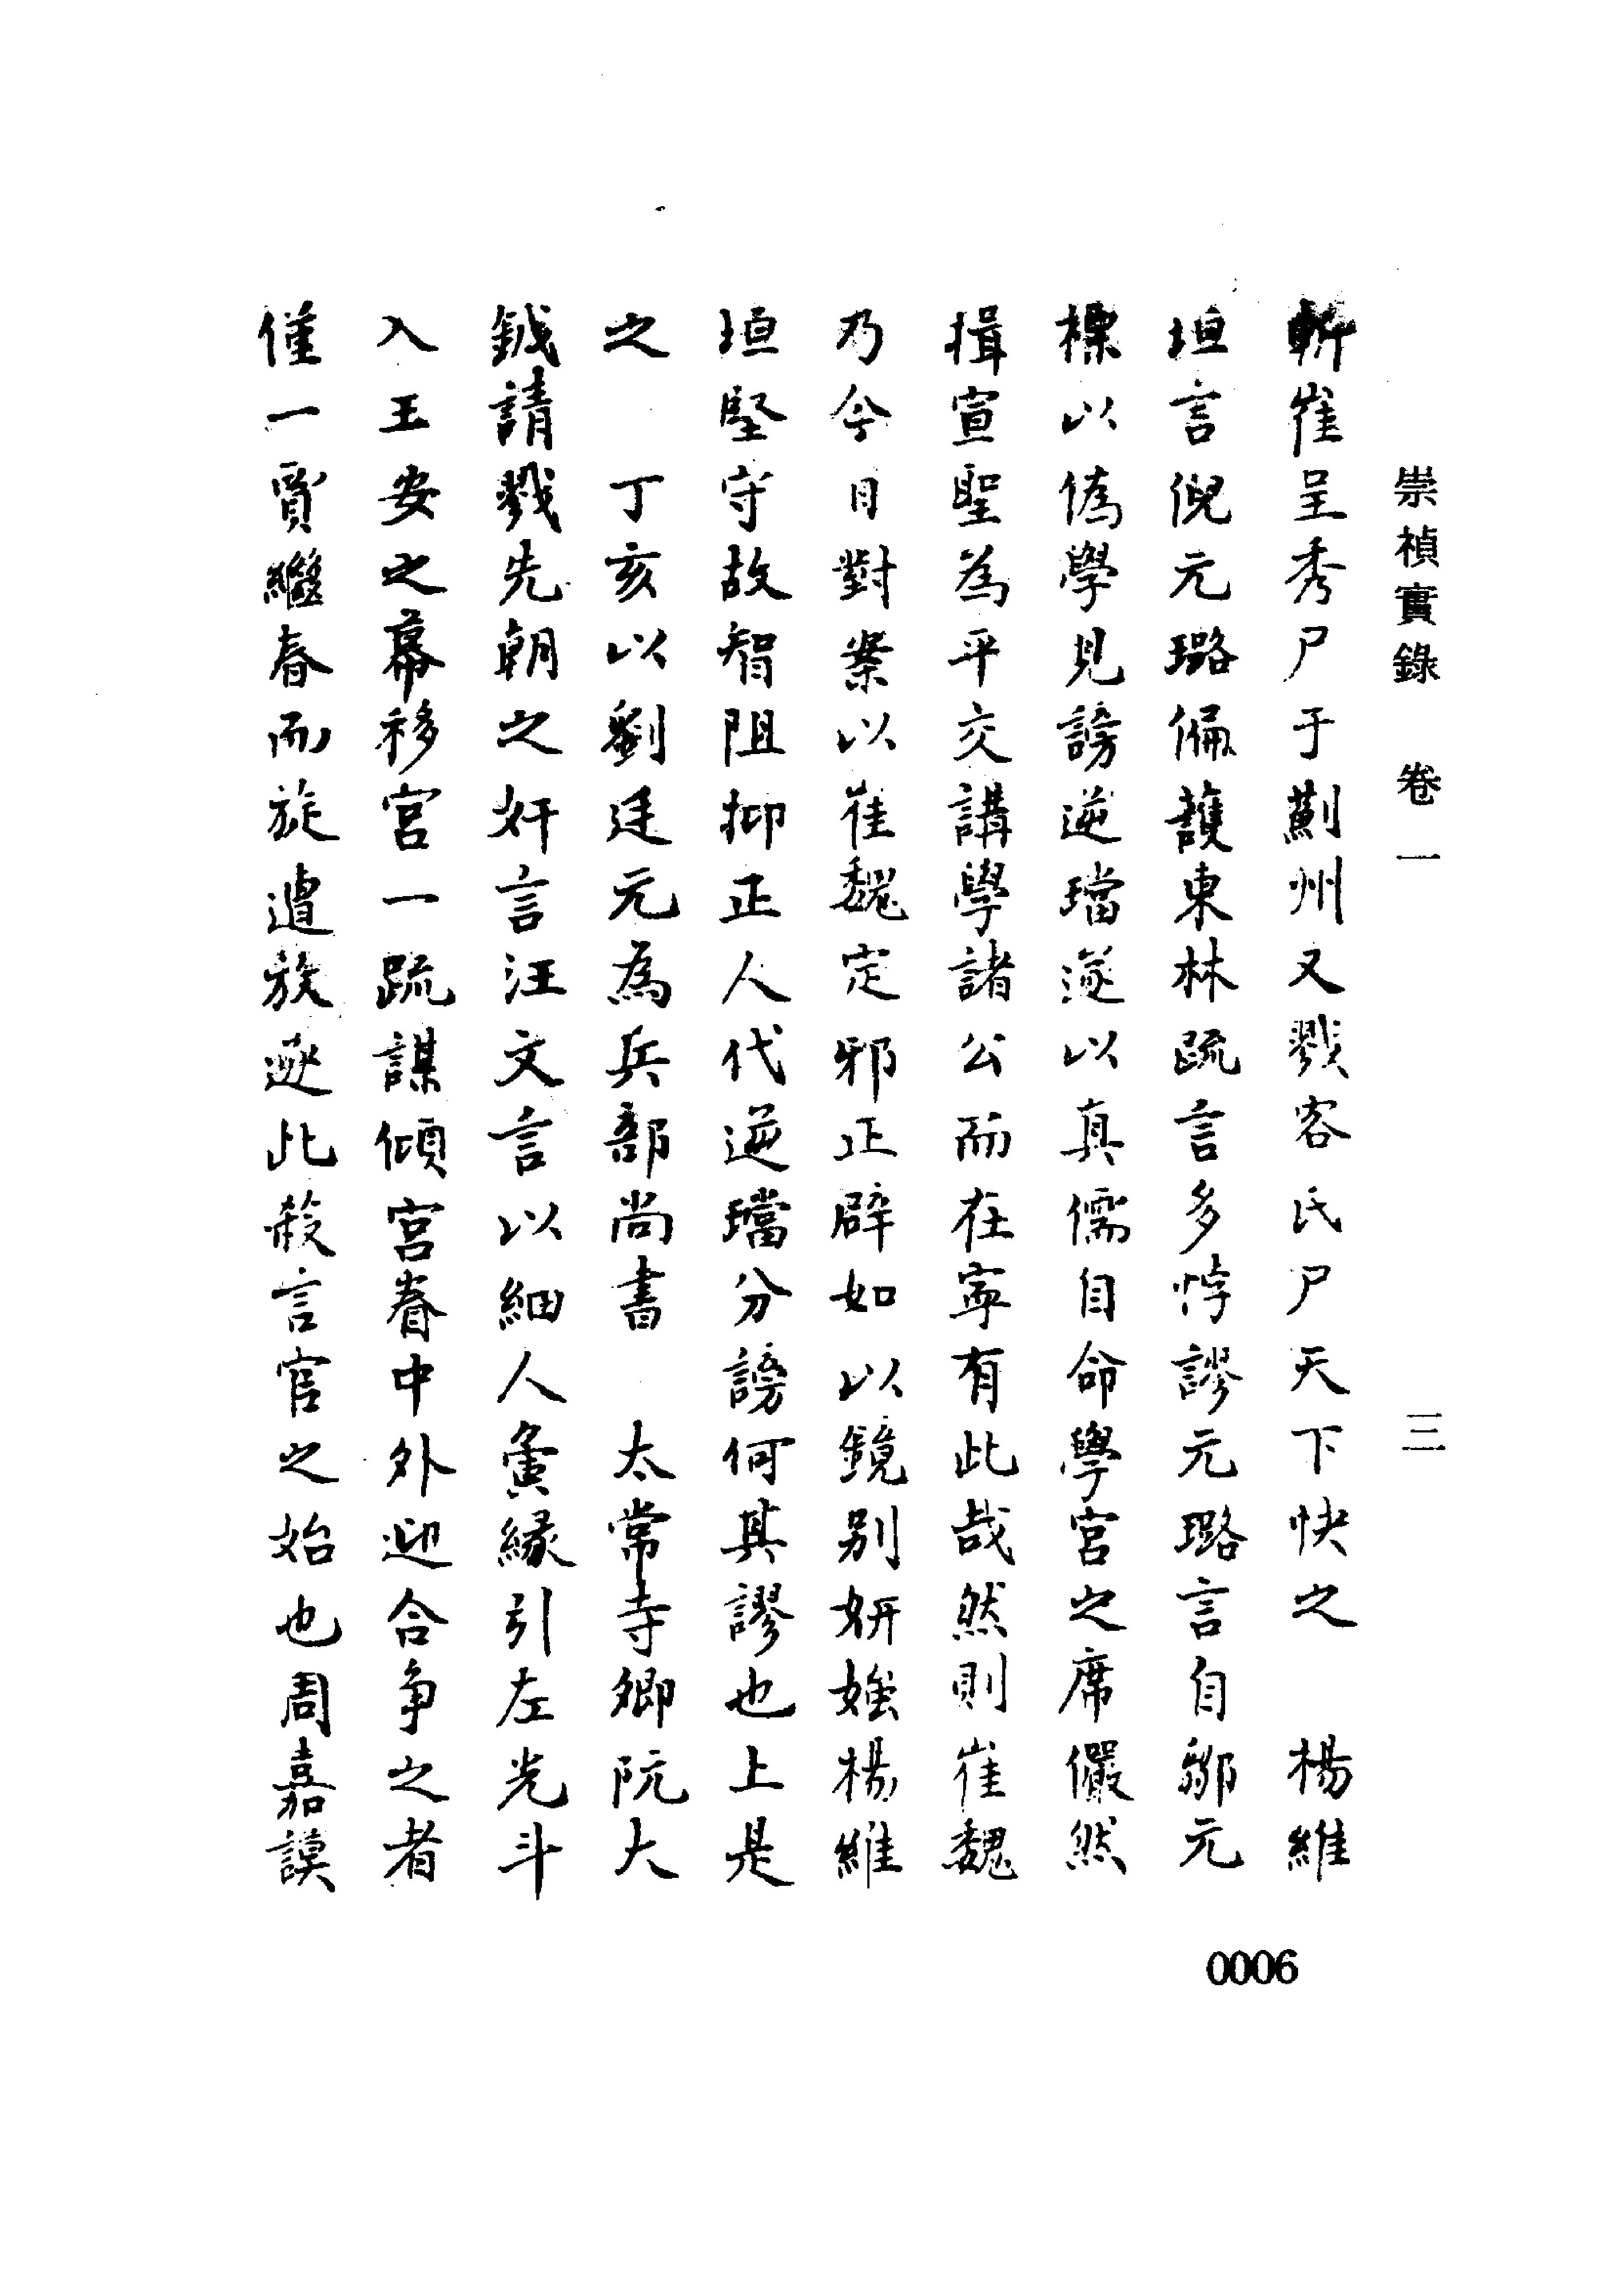 崇禎實錄 卷一 三
斬崔呈秀尸于薊州又戮客氏尸天下快之 楊維
垣言倪元璐偏護東林疏言多悖謬元璐言自鄒元
標以偽學見謗逆璫遂以真儒自命學宮之席儼然
揖宣聖為平交講學諸公而在寧有此哉然則崔魏
乃今日對案以崔魏定邪正辟如以鏡別妍媸楊維
垣堅守故智阻抑正人代逆璫分謗何其謬也上是
之 丁亥以劉廷元為兵部尚書 太常寺卿阮大
鋮請戮先朝之奸言汪文言以細人夤緣引左光斗
入王安之幕移宮一疏謀傾宮眷中外迎合爭之者
僅一賈繼春而旋遭放逐此殺言官之始也周嘉謨
0006